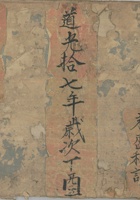 道光拾七年歲次丁酉